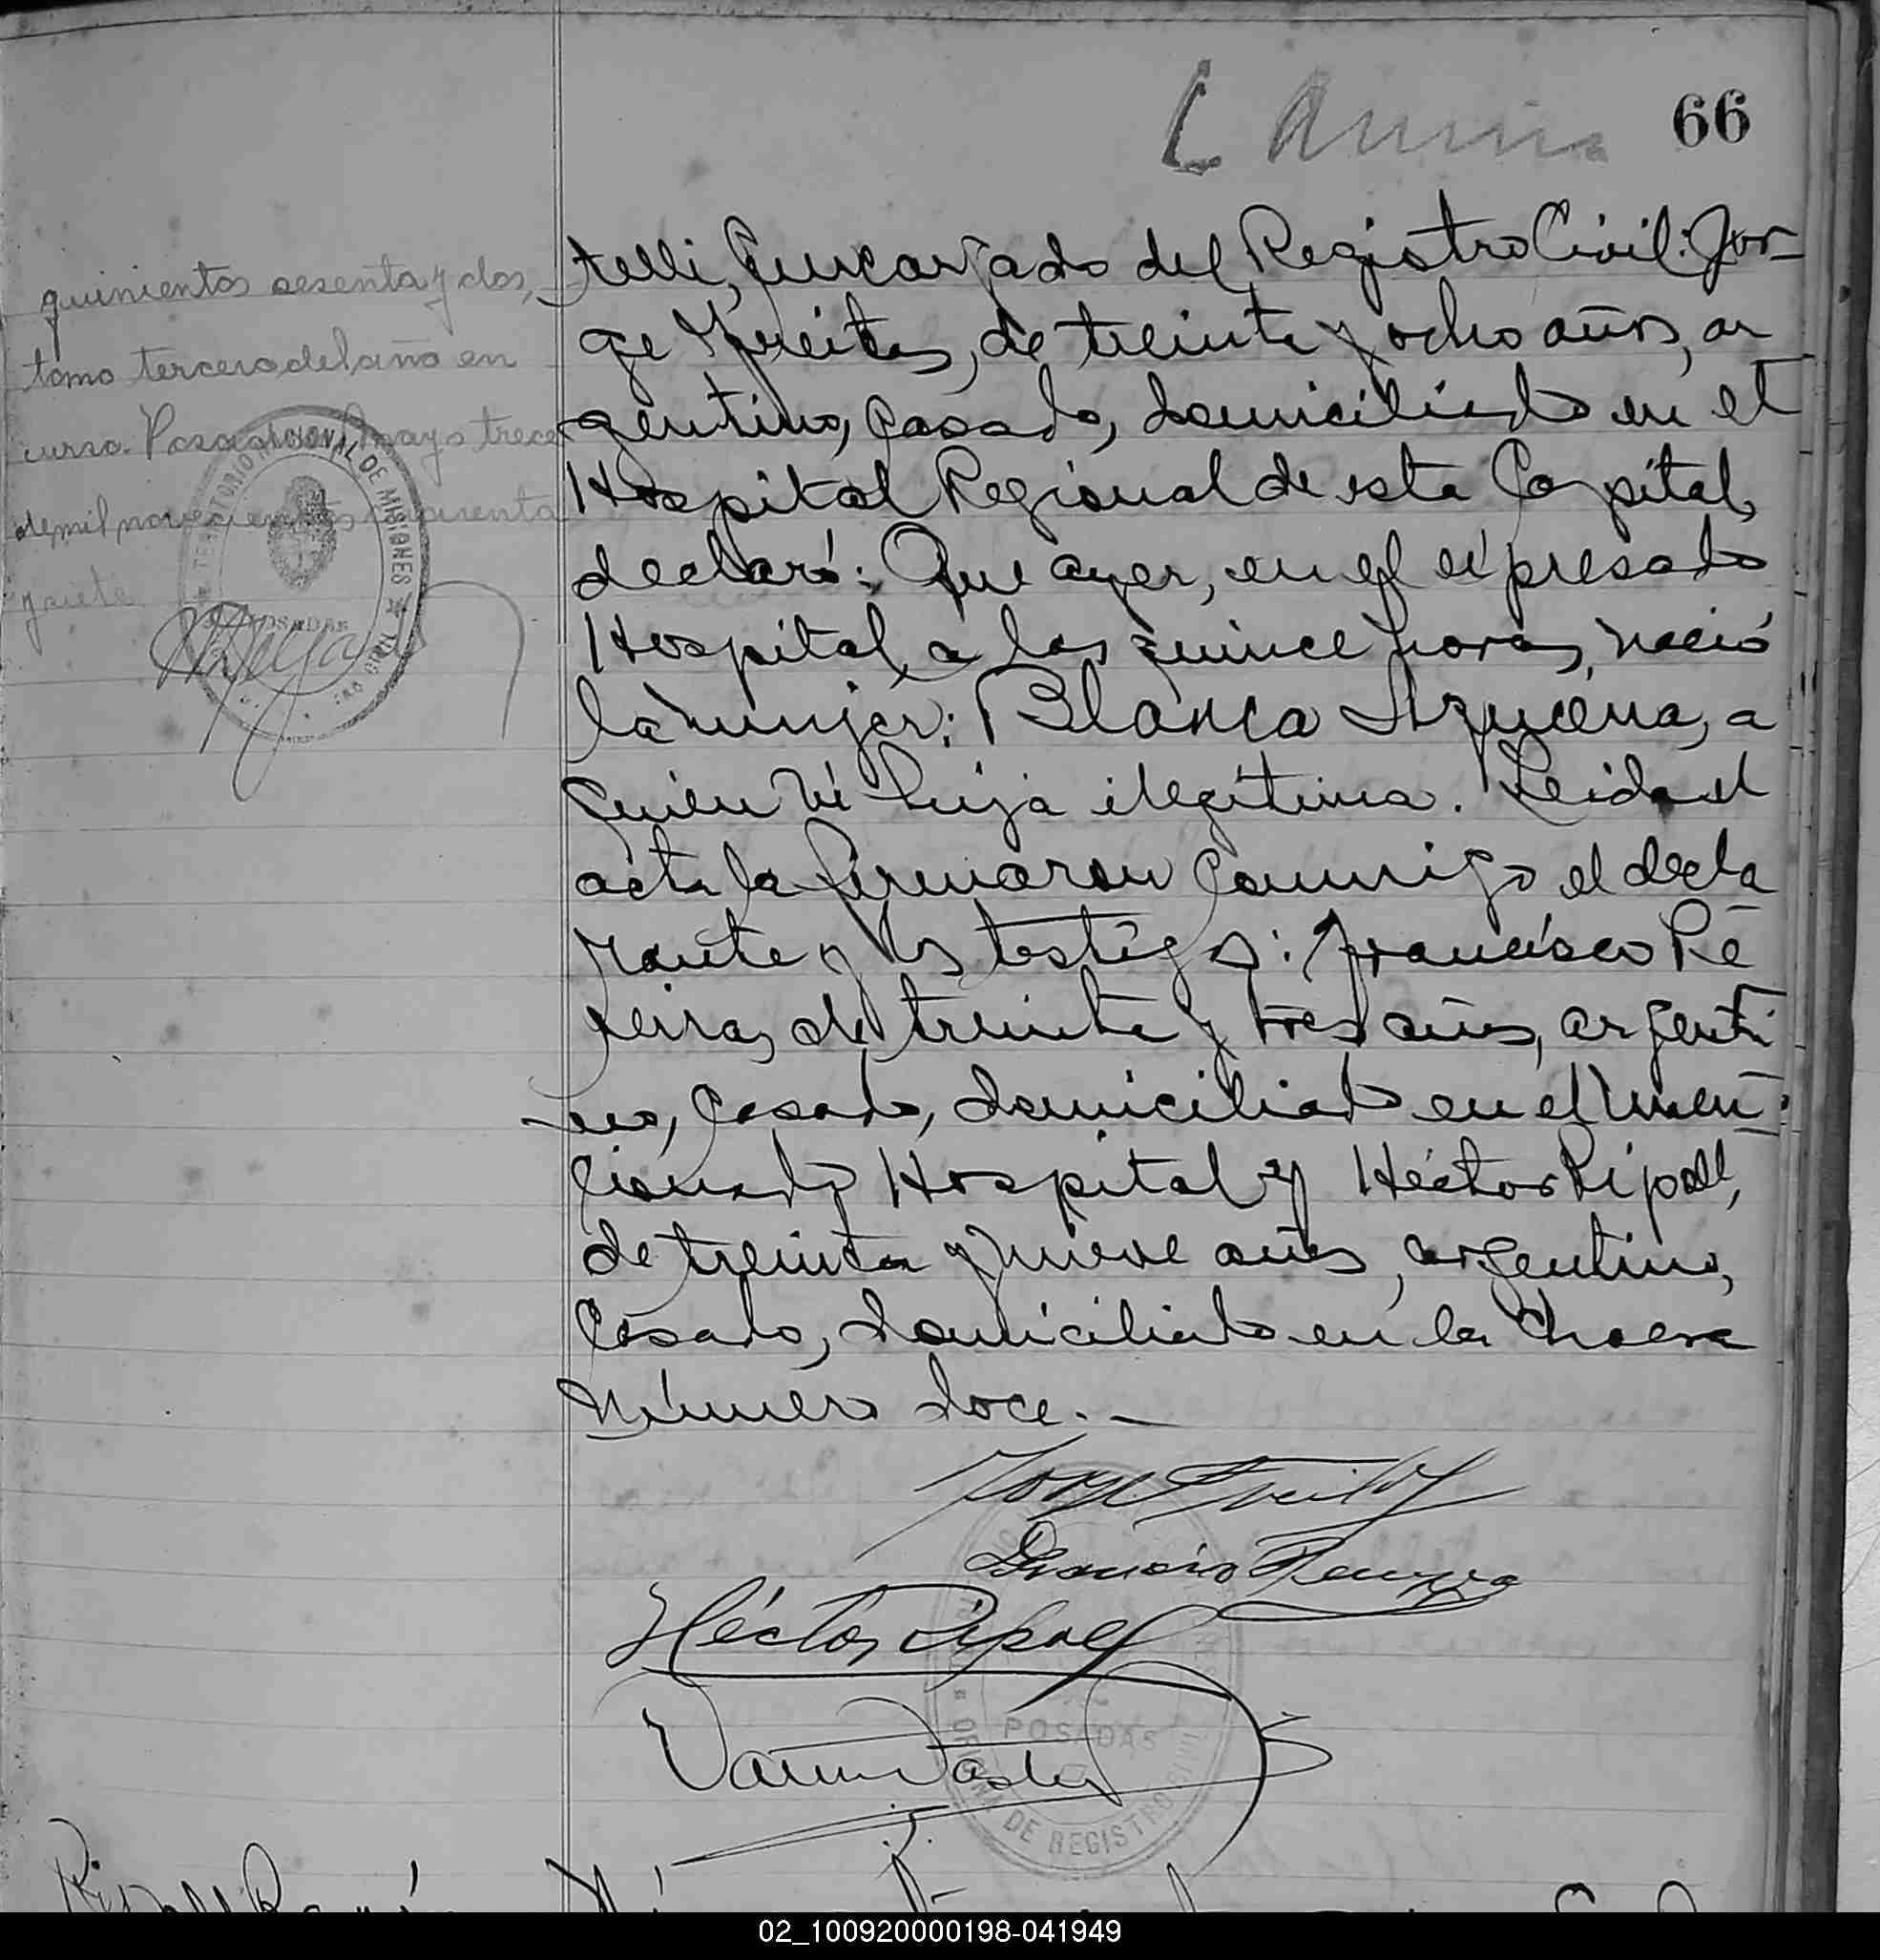 66
quinientos sesenta y dos,
tomo tercero del año en
curso. Posadas, Mayo trece
de mil novecientos cuarenta
y siete
TERRITORIO NACIONAL DE MISIONES
POSADAS
telli, Encargado del Registro Civil: Jor-
ge Freitas, de treinta y ocho años, ar
gentino, casado, domiciliado en el
Hospital Regional de esta Capital,
declaró: Que ayer, en el expresado
Hospital a las quince horas, nació
la mujer: Blanca Azucena, a
quien vi hija ilegítima. Leida el
acta la firmaron conmigo el decla
rante y los testigos: Francisco Pe-
reira, de treinta y tres años, argenti
no, casado, domiciliado en el men-
cionado Hospital y Héctor Ripoll,
de treinta y nueve años, argentino,
casado, domiciliado en la chacra
número doce.-
Jorge Freitas
Francisco Pereyra
Héctor Ripoll
POSADAS
OFICINA DE REGISTRO CIVIL
02_100920000198-041949